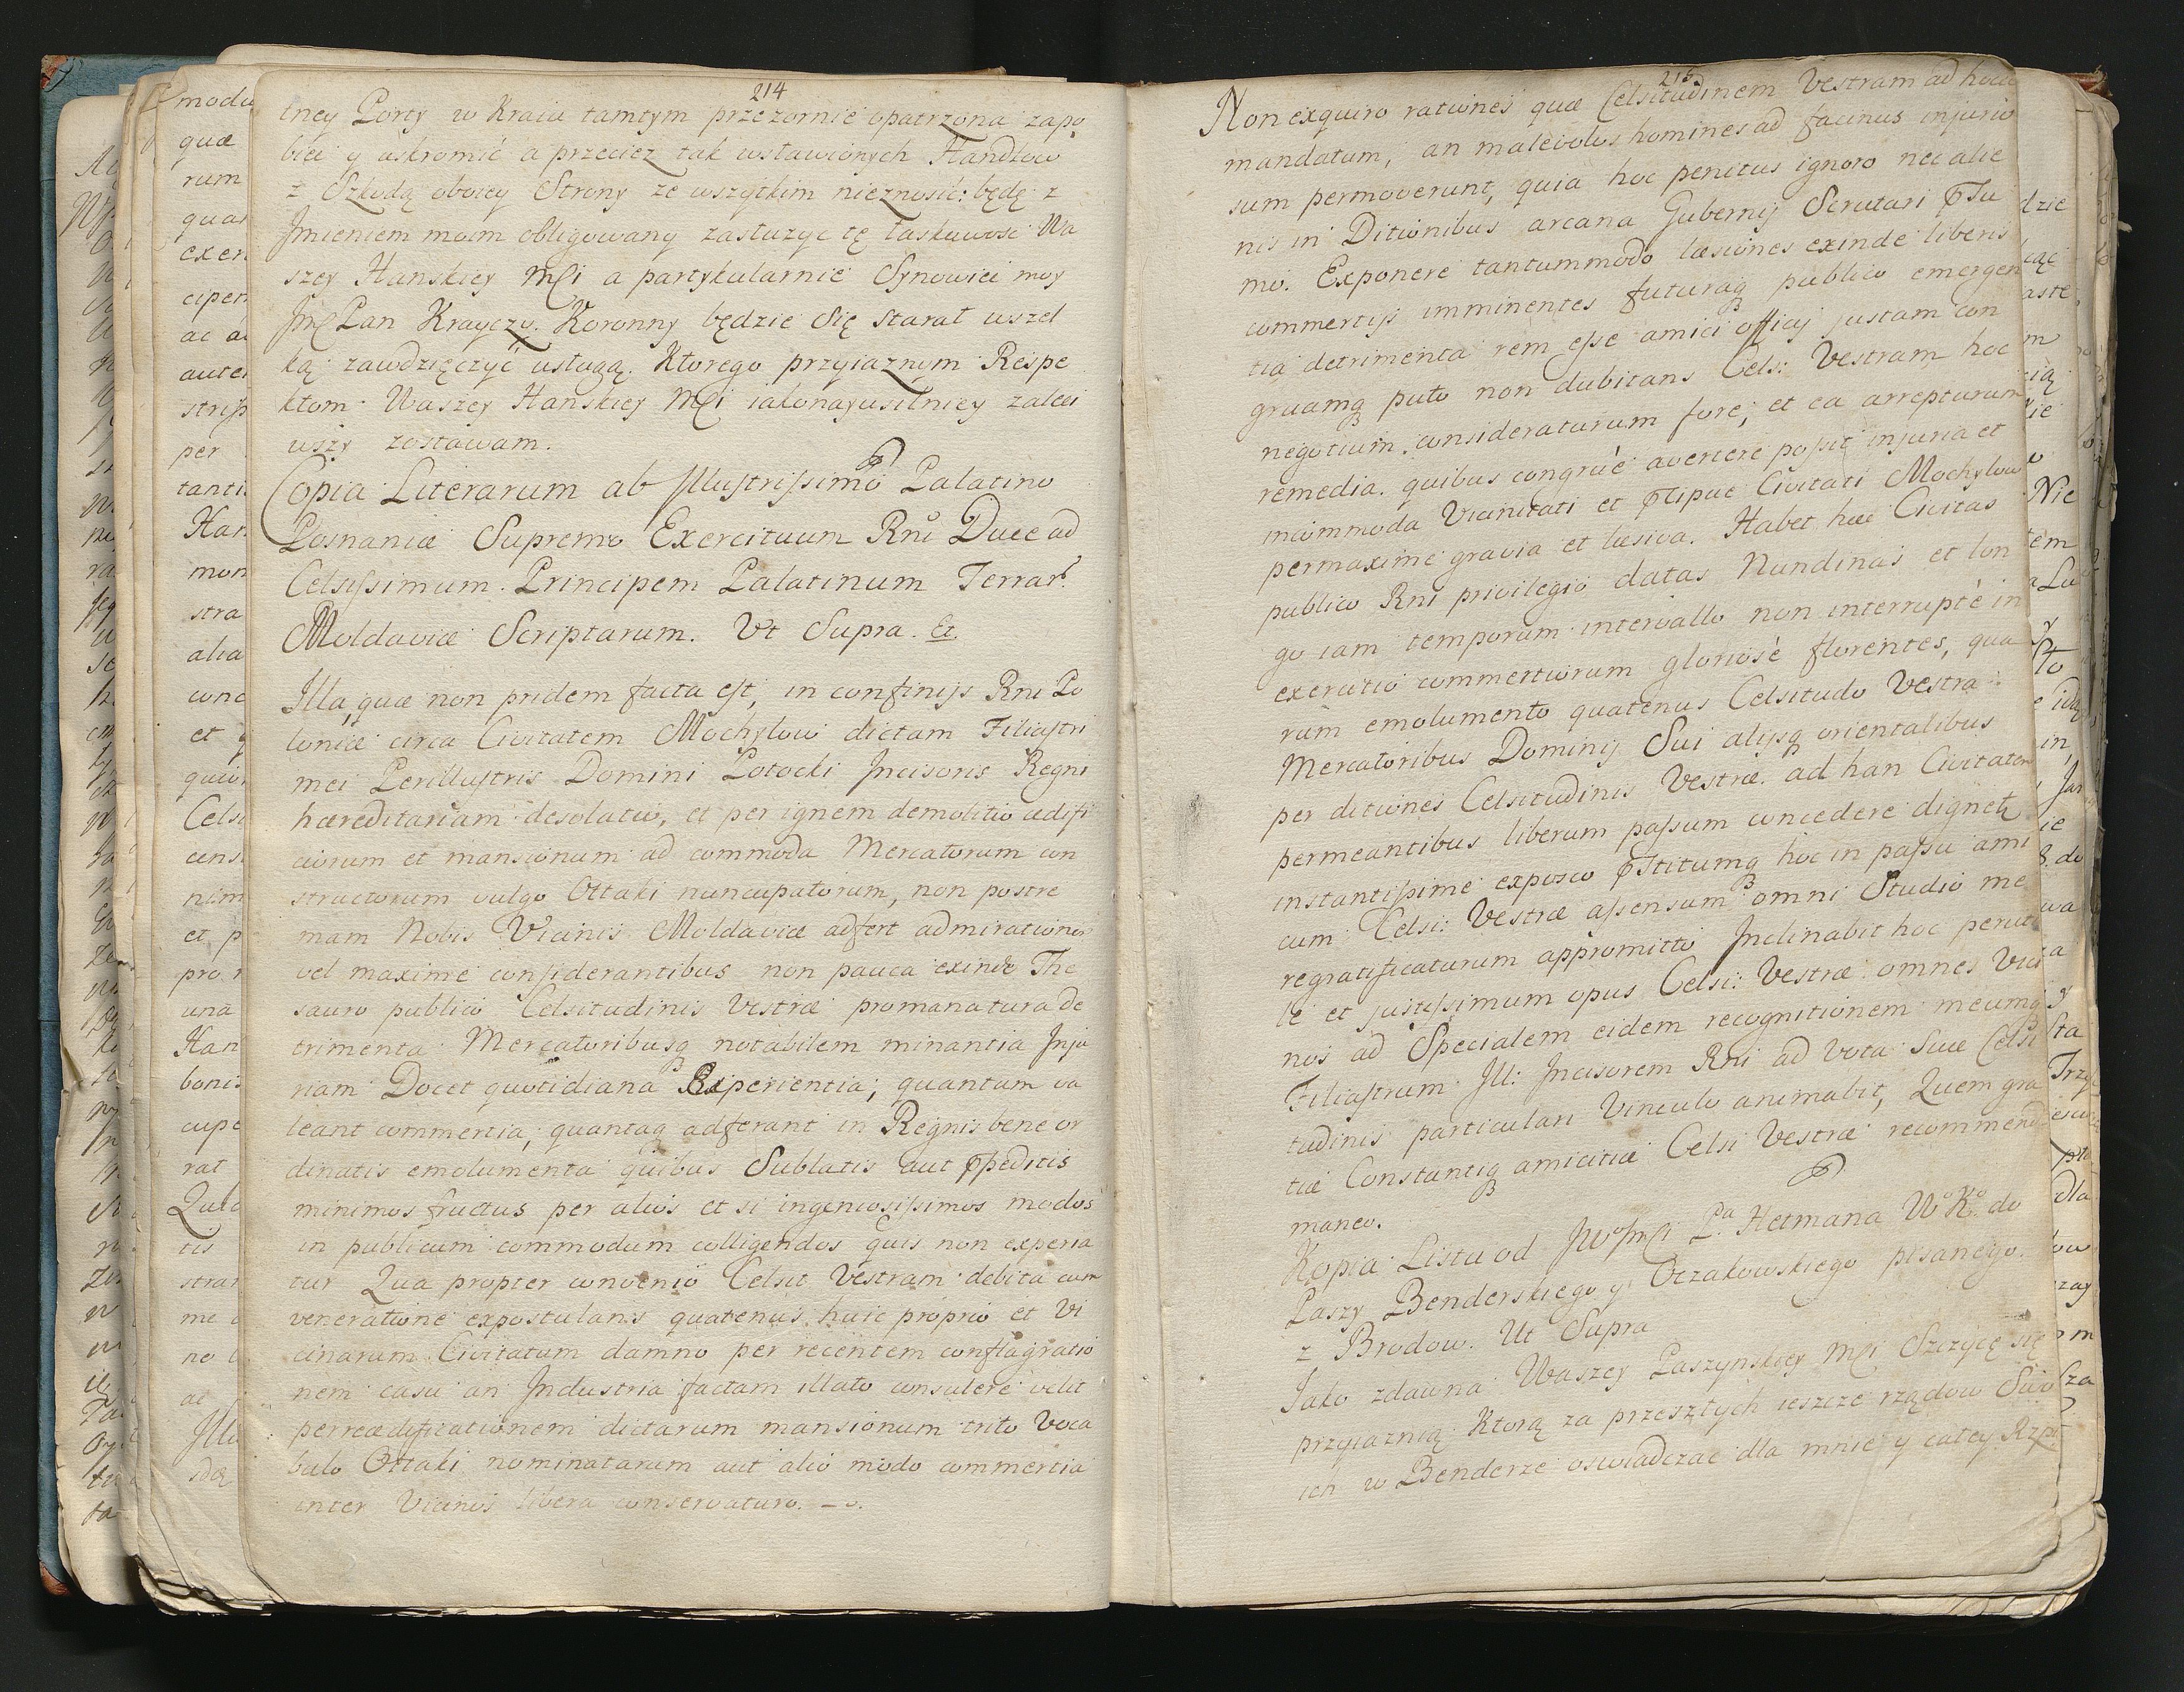 214
tney Porty w Kraiu tamtym przezornie opatrzona zapo
bieć y uskromić a przecież tak wsławionych Handlow
z Szkodą oboiey Strony ze wszytkim nieznosić: będę z
Jmieniem moim obligowany zasłuzyc tę łaskawość Wa
szey Hanskiey Mći a partykularnie Synowiec moy
Jmć Pan Krayczy Koronny będzie Się starał wszel
ką zawdzięczyć usługą. Ktorego przyiaznym Respe
ktom Waszey Hanskiey Mći iakonayusilniey zaleci
wszy zostawam.
Copia Literarum ab Jllustrissimo Palatino
Posnaniæ Supremo Exercituum Rni Duce ad
Celsissimum Principem Palatinum Terrar
Moldaviæ Scriptarum. Vt Supra. Et.
Illa, quæ non pridem facta est, in confinijs Rni Po
loniæ circa Civitatem Mochylow dictam Filiastri
mei Perillustris Domini Potocki Jncisoris Regni
hæreditariam desolatio, et per ignem demolitio ædifi
ciorum et mansionum ad commoda Mercatorum con
structorum vulgo Ottaki nuncupatorum, non postre
mam Nobis Vicinis Moldaviæ adfert admirationem
vel maxime considerantibus non pauca exinde The
sauro publico Celsitudinis Vestræ promanatura de
trimenta Mercatoribusq notabilem minantia Jnju
riam Docet quotidiana Experientia; quantum va
leant commertia, quantaq adferant in Regnis bene or
dinatis emolumenta quibus Sublatis aut ꝓpeditis
minimos fructus per alios et si ingeniosissimos modos
in publicum commodum colligendos quis non experia
tur Qua propter convenio Celsit Vestram debita cum
veneratione expostulans quatenus huic proprio et Vi
cinarum Civitatum damno per recentem conflagratio
nem casu an Jndustria factam illato consulere velit
perreædificationem dictarum mansionum trito Voca
bulo Ottaki nominatarum aut alio modo commertia
inter Vicinos libera conservaturo.
215
Non exquiro rationes quæ Celsitudinem Vestram ad hoce
mandatum, an malevolos homines ad facinus injurio
sum permoverunt, quia hoc penitus ignoro nec alie
nis in Ditionibus arcana Gubernij Scrutari ꝓSu
mo. Exponere tantummodo læsiones exinde liberis
commertijs imminentes futuraq publico emergen
tia detrimenta rem esse amici officij justam con
gruamq puto non dubitans Cels: Vestram hoc
negotium consideraturum fore, et ea arrepturum
remedia. quibus congrue avertere possit injuria et
incommoda Vicinitati et ꝓcipue Civitati Mochylow
permaxime gravia et læsiva. Habet hæc Civitas
publico Rni privilegio datas Nundinas et lon
go iam temporum intervallo non interrupte in
exercitio commertiorum gloriose florentes, qua
rum emolumento quatenus Celsitudo Vestra
Mercatoribus Dominij Sui alijsq orientalibus
per ditiones Celsitudinis Vestræ. ad han Civitatem
permeantibus liberum passum concedere dignet
instantissime exposco ꝓStitumq hoc in passu ami
cum Celsi: Vestræ assensum omni Studio me
regratificaturum appromitto Jnclinabit hoc peruti
le et justissimum opus Celsi: Vestræ omnes Vici
nos ad Specialem eidem recognitionem meumq
Filiastrum Jll: Jncisorem Rni ad vota Suæ Celsi
tudinis particulari Vinculo animabit, Quem gra
tiæ Constantiq amicitiæ Celsi Vestræ recommend
maneo.
Kopia Listu od JWoJmći Pa Hetmana Wo Ko do
Paszy Benderskiego y Oczakowskiego pisanego
z Brodow. Ut Supra
Jako zdawna Waszey Paszynskiey Mći Szczycę się
przyiaznią Ktorą za przeszłych ieszcze rządow Swo
ich w Benderze oswiadczac dla mnie y całey Rzpt